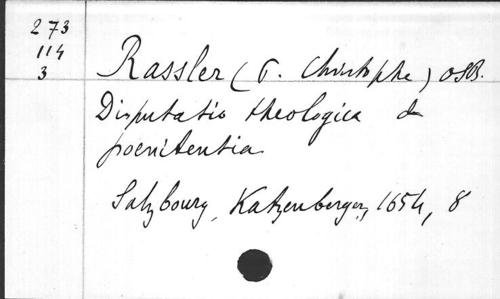 273
114
3
Rassler (P. Christophe) OSB.
Disputatio theologica de
poenitentia
Salzbourg, Katzenberger, 1654, 8